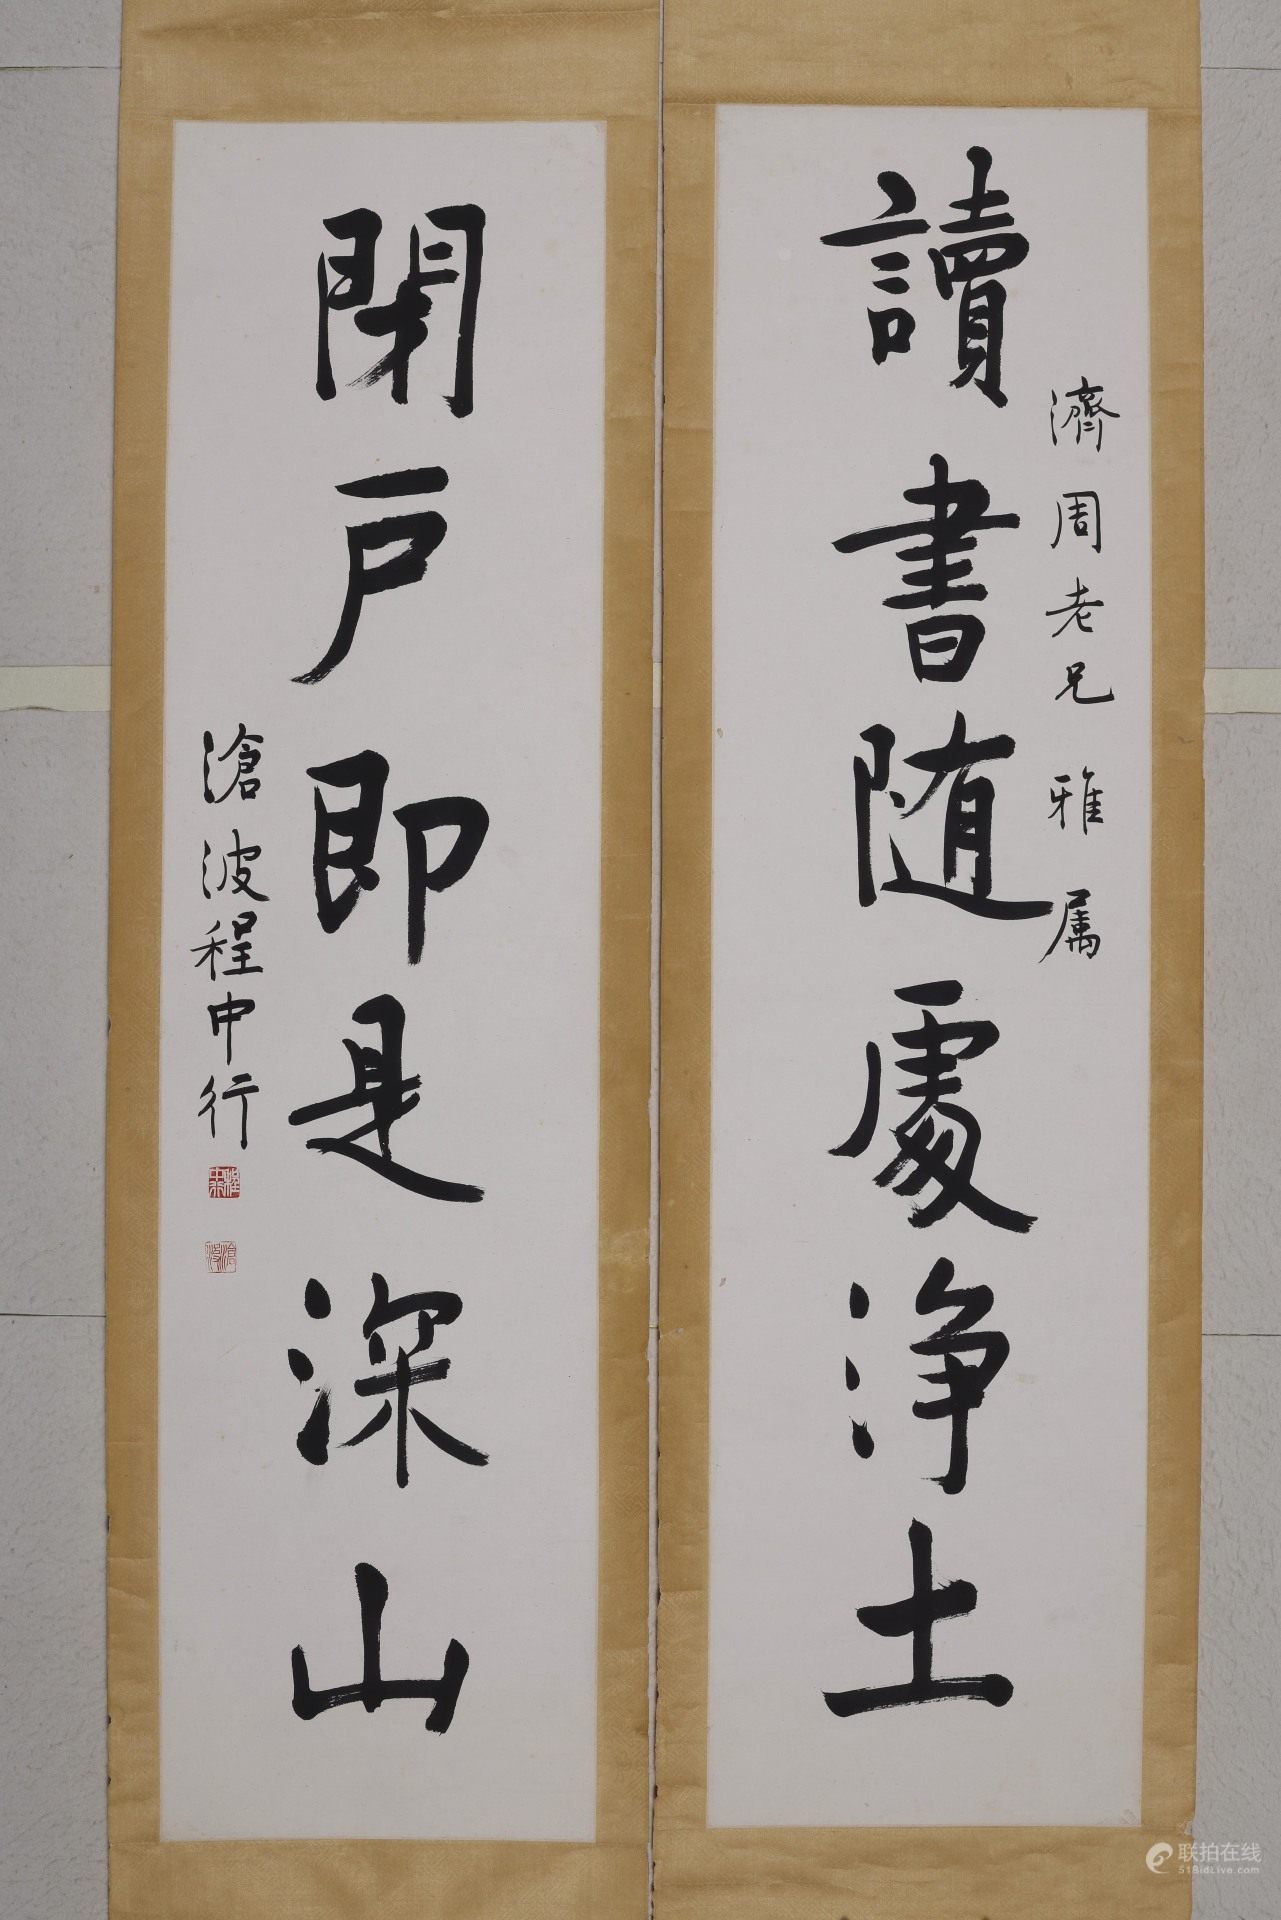 濟周老兄雅属
讀書随處淨土
閉戸即是深山
滄波程中行
程中行
滄波
联拍在线
51BidLive.com